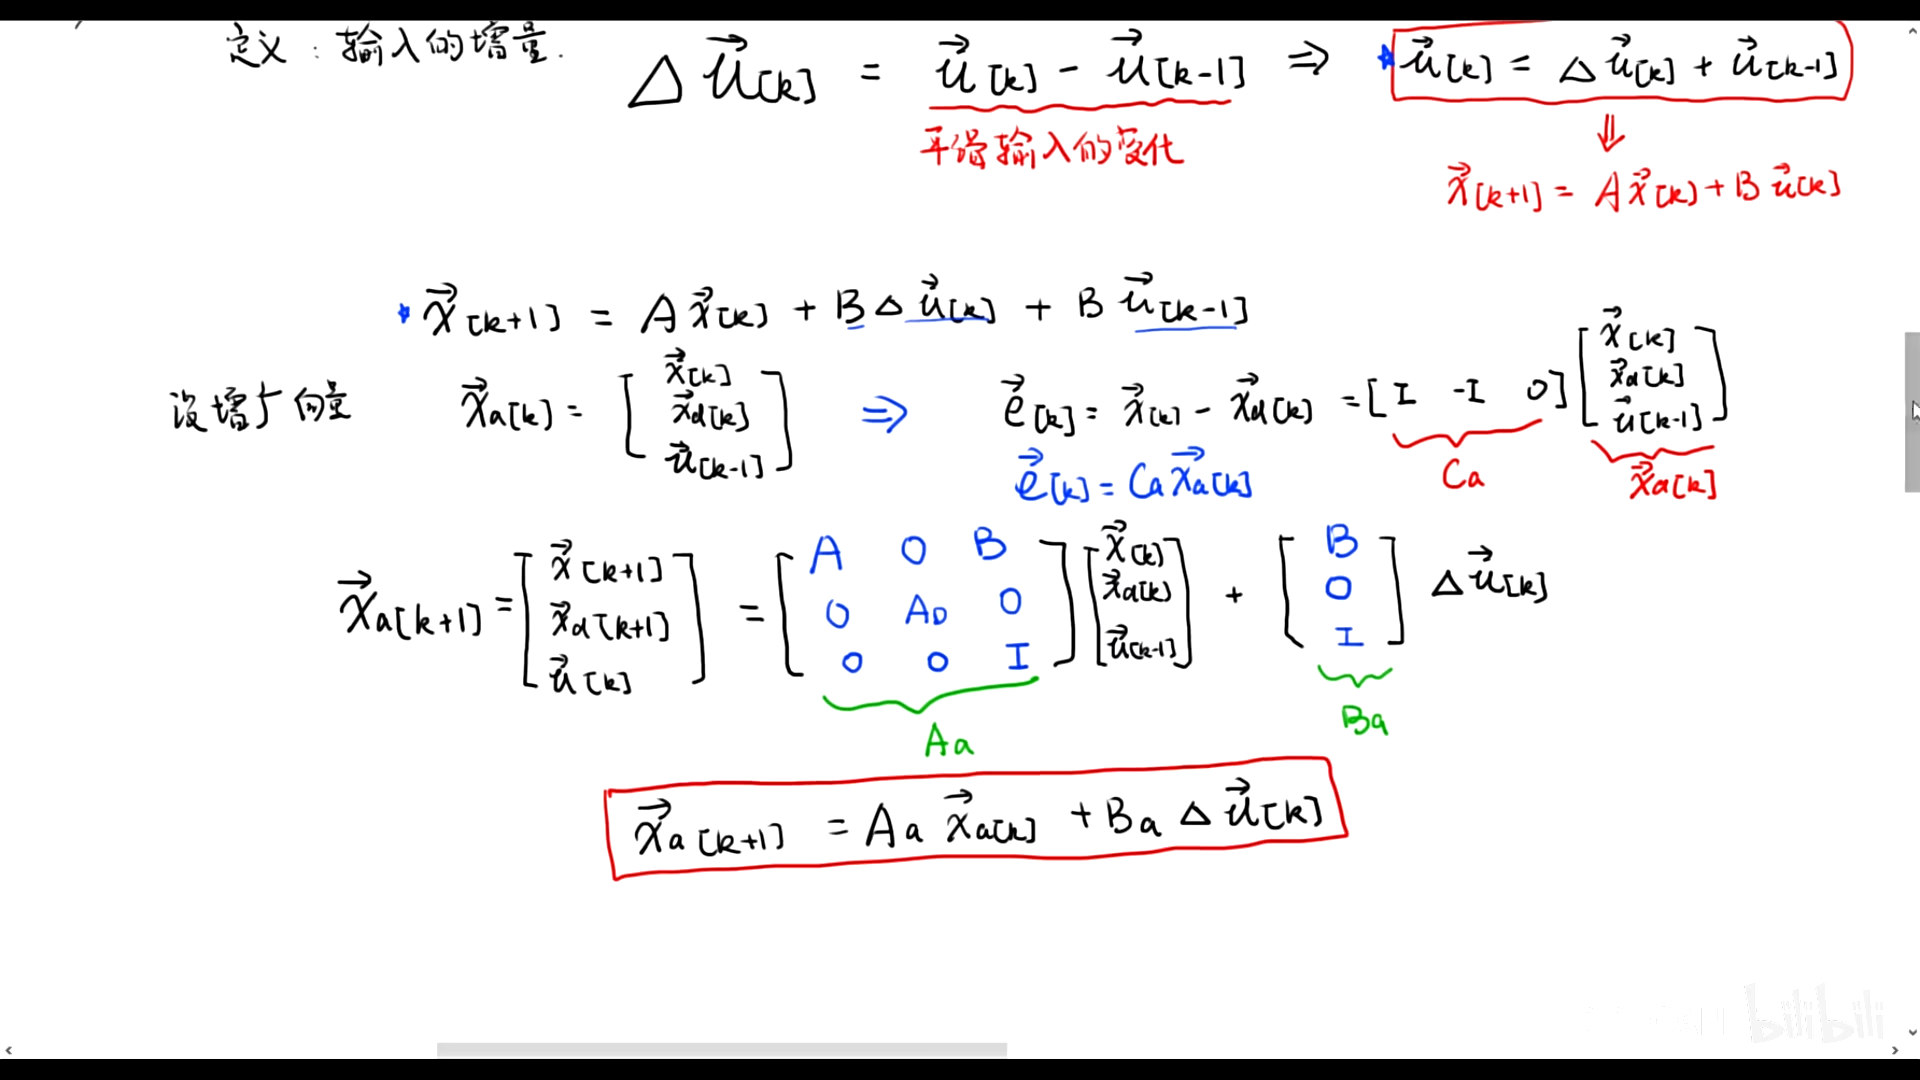 定义：输入的增量.
Δu⃗[k] = u⃗[k] - u⃗[k-1] ⇒ *u⃗[k] = Δu⃗[k] + u⃗[k-1]
平滑输入的变化
⇓
x⃗[k+1] = Ax⃗[k] + Bu⃗[k]
*x⃗[k+1] = Ax⃗[k] + BΔu⃗[k] + Bu⃗[k-1]
设增广向量 x⃗a[k] = [x⃗[k] x⃗d[k] u⃗[k-1]] ⇒ e⃗[k] = x⃗[k] - x⃗d[k] = [I -I 0] [x⃗[k] x⃗d[k] u⃗[k-1]]
Ca x⃗a[k]
e⃗[k] = Ca x⃗a[k]
x⃗a[k+1] = [x⃗[k+1] x⃗d[k+1] u⃗[k]] = [A 0 B 0 AD 0 0 0 I] [x⃗[k] x⃗d[k] u⃗[k-1]] + [B 0 I] Δu⃗[k]
Aa Ba
x⃗a[k+1] = Aa x⃗a[k] + Ba Δu⃗[k]
bilibili